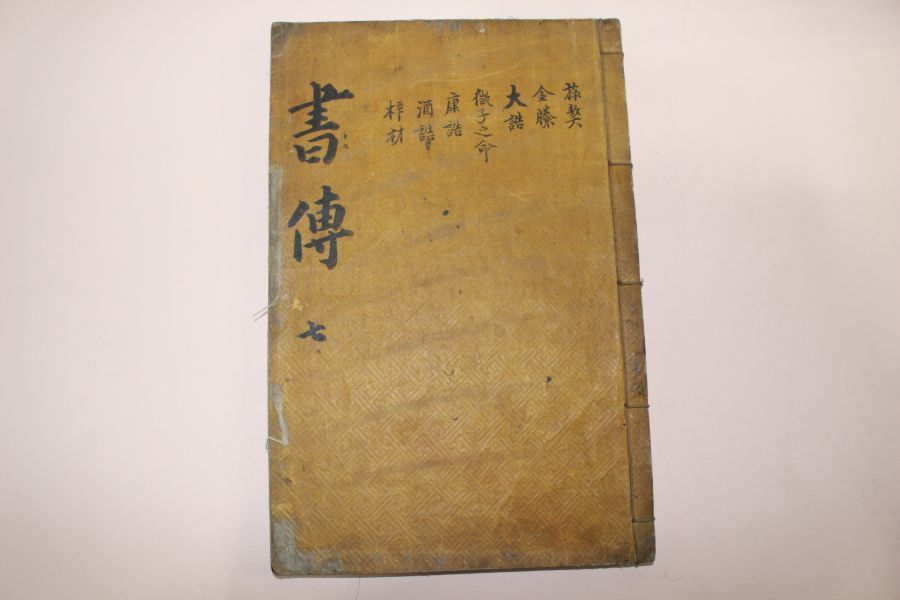 旅獒
金縢
大誥
微子之命
康誥
酒誥
梓材
書傳
七